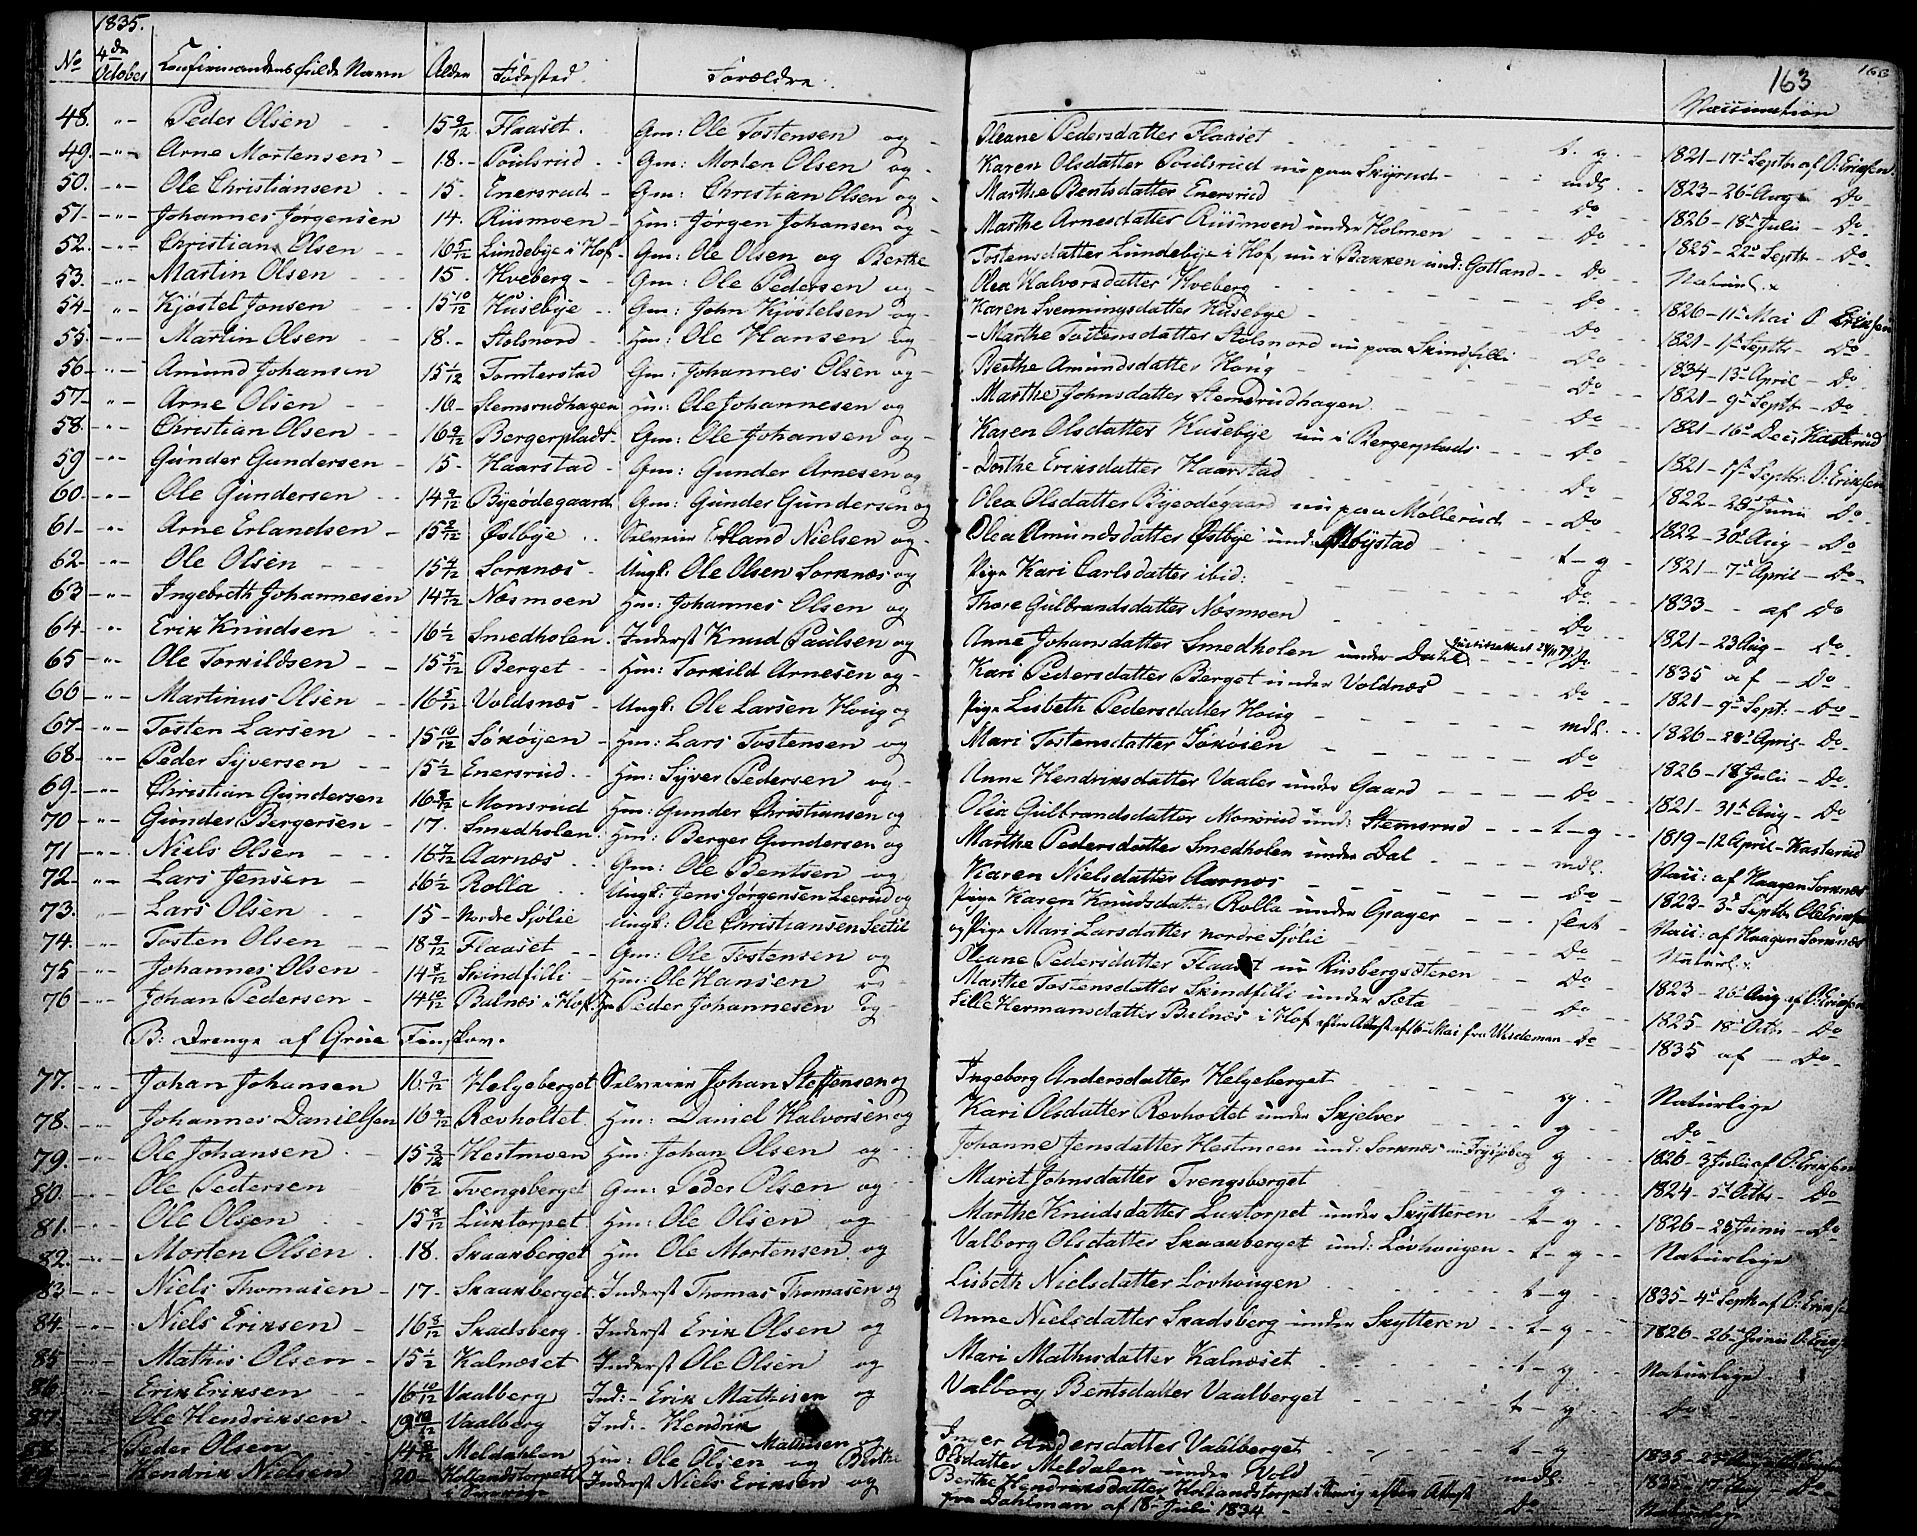 1835.
163
163
No 4de October Confirmandens fulde Navn Alder Fødested. Forældre. Vaccination
48. -"- Peder Olsen 15 9/12 Flaaset. Gm: Ole Tostensen og Oleane Pedersdatter Flaaset t. g. 1821-17de Septbr af O: Eriksen
49. -"- Arne Mortensen 18. Poulsrud Gm: Morten Olsen og Karen Olsdatter Poulsrud nu paa Skyrud mdl. 1823-26de Aug Do
50. -"- Ole Christiansen 15. Enersrud Gm: Christian Olsen og Marthe Bentsdatter Enersrud Do 1826-18de Julii Do
51. -"- Johannes Jørgensen 14. Riismoen Hm: Jørgen Johansen og Marthe Arnesdatter Riismoen under Holmen Do 1825-22de Septbr Do
52. -"- Christian Olsen 16 Lundebye i Hof Gm: Ole Olsen og Berthe Tostensdatter Lundebye i Hof, nu i Bakken und: Gotland Do Naturl.
53. -"- Martin Olsen 15. Hveberg Gm: Ole Pedersen og Olea Halvorsdatter Hveberg Do 1826-11te Mai O Eriksen
54. -"- Kjøstel Jonsen 15 10/12 Husebye Gm: John Kjøstelsen og Karen Svenningsdatter Husebye Do 1821-1ste Septbr Do
55. -"- Martin Olsen 18. Stolsnord Hm: Ole Hansen og Marthe Tostensdatter Stolsnord nu paa Skindfilli Do 1834-13de April Do
56. -"- Amund Johansen 15 1/12 Tomterstad Gm: Johannes Olsen og Berthe Amundsdatter Houg Do 1821-9de Septbr Do
57. -"- Arne Olsen 16 Stemsrudhagen Hm: Ole Johannesen og Marthe Johnsdatter Stemsrudhagen Do 1821-16de Decr Kasterud
58. -"- Christian Olsen 16 9/12 Bergerplads Gm: Ole Johansen og Karen Olsdatter Husebye nu i Bergerplads Do 1821-1ste Septbr O: Eriksen
59 -"- Gunder Gundersen 15 Haarstad Gm: Gunder Arnesen og Dorthe Eriksdatter Haarstad Do 1822-28de Junii Do
60. -"- Ole Gundersen 14 9/12 Byeødegaard Gm: Gunder Gundersen og Olea Olsdatter Byeødegaard nu paa Møllerud Do 1822-30te Aug Do
61. -"- Arne Erlandsen 15 8/12 Østbye Selveier Erland Nielsen og Olea Amundsdatter Østbye und: Opbystad t-g 1821-7de April Do
62. -"- Ole Olsen 15 4/12 Sorknæs Ungk: Ole Olsen Sorknæs og Pige Kari Carlsdatter ibid: Do 1833 af Do
63. -"- Ingebreth Johannesen 14 7/12 Næsmoen Hm: Johannes Olsen og Thore Gulbrandsdatter Næsmoen Do 1821-23 Aug Do
64. -"- Erik Knudsen 16 1/2 Smedholen Inderst Knud Paulsen og Anne Johansdatter Smedholen under Dahl Do 1835 af Do
65. -"- Ole Torkildsen 15 5/12 Berget Hm: Torkild Arnesen og Kari Pedersdatter Berget under Voldnæs Do 1821-9de Sept: Do
66. -"- Martinus Olsen 16 5/12 Voldsnæs Ungk: Ole Larsen Houg og Pige Lisbeth Pedersdatter Houg mdl. 1826-28de April Do
67. -"- Tosten Larsen 15 10/12 Søkøyen Hm: Lars Tostensen og Mari Tostensdatter Søkøien Do 1826-18 Julii Do
68. -"- Peder Syversen 15 1/2 Enersrud Hm: Syver Pedersen og Anne Hendriksdatter Vaaler under Gaard Do 1821-31te Aug Do
69. -"- Christian Gundersen 16 8/12 Monsrud Hm: Gunder Christiansen og Olia Gulbrandsdatter Monsrud und: Stemsrud t-g 1819-12 April Kasterud
70 -"- Gunder Bergersen 17. Smedholen Hm: Berger Gundersen og Marthe Pedersdatter Smedholen under Dal mdl. Vacc: af Haagen Sorknæs
71 -"- Niels Olsen 16 7/12 Aarnæs Gm: Ole Bentsen og Karen Nielsdatter Aarnæs Do 1823-3de Septbr Ole Eriksen
72. -"- Lars Jensen 16 1/2 Rolla Ungk: Jens Jørgensen Leerud og Pige Karen Knudsdatter Rolla under Opager slet Vacc: af Haagen Sorknæs
73. -"- Lars Olsen 15 Nordre Sjølie Ungk: Ole Christiansen Seetil og Pige Mari Larsdatter nordre Sjølie Do Naturl.
74. -"- Tosten Olsen 18 9/12 Flaaset Gm: Ole Tostensen og Oleane Pedersdatter Flaaset nu Riisbergsæteren Do 1823-26de Aug af O: Eriksen
75 -"- Johannes Olsen 14 8/12 Skindfilli Hm: Ole Hansen og Marthe Tostensdatter Skindfilli under Sæta Do 1825-18de Octbr Do
76 -"- Johan Pedersen 14 10/12 Bulnæs i Hof Peder Johannesen og Lille Hermansdatter Bulnæs i Hof efter Attest af 16 Mai fra Ulsdeman Do 1835 af Do
B: Drenge af Grue Finskov.
77. -"- Johan Johansen 16 9/12 Helgeberget Selveier Johan Steffensen og Ingeborg Andersdatter Helgeberget g Naturlige
78. -"- Johannes Danielsen 16 9/12 Rævholtet Hm: Daniel Halvorsen og Kari Olsdatter Rævholtet under Skjelver g Do
79. -"- Ole Johansen 15 3/12 Hestmoen Hm: Johan Olsen og Johanne Jensdatter Hestmoen und: Sorknæs g 1826-3 Julii af O: Eriksen
80. -"- Ole Pedersen 16 1/2 Tvengsberget Gm: Peder Olsen og Marit Johnsdatter Tvengsberget g 1824-5te Octbr Do
81. -"- Ole Olsen 15 8/12 Luxtorpet Hm: Ole Olsen og Marthe Knudsdatter Luxtorpet under Skytteren t-g 1826-28 Junii Do
82. -"- Morten Olsen 18. Skaarberget Hm Ole Mortensen og Valborg Olsdatter Skaarberget und: Løvhougen t-g Naturlige
83 -"- Niels Thomasen 17 Skaarberget Inderst Thomas Thomasen og Lisbeth Nielsdatter Løvhougen t-g 1835-4de Septbr af O: Eriksen
84. -"- Niels Eriksen 16 8/12 Skadsberg Inderst Erik Olsen og Anne Nielsdatter Skadsberg under Skytteren t-g 1826-26de Junii
85 -"- Mathis Olsen 15 1/2 Kalnæset Inderst Ole Olsen og Mari Mathisdatter Kalnæset t-g Naturlige
86. -"- Erik Eriksen 16 10/12 Vaalberg Ind: Erik Mathisen og Valborg Bentsdatter Vaalberget t-g Do
87. -"- Ole Hendriksen 19 10/12 Vaalberg Ind: Hendrik Mathisen og Inger Andersdatter Vahlberget t-g 1835-23
88 -"- Peder Olsen 14 8/12 Meldahlen Hm: Ole Olsen og Berthe Olsdatter Meldalen under Vold mdl. 1835-17de Aug Do
89 -"- Hendrik Nielsen 20 Hollandstorpet i Sverrige Inderst Niels Eriksen og Berthe Hendriksdatter Hollandstorpet i Sverig efter Attest
fra Dahlman af 18de Julii 1834 Do Naturlige